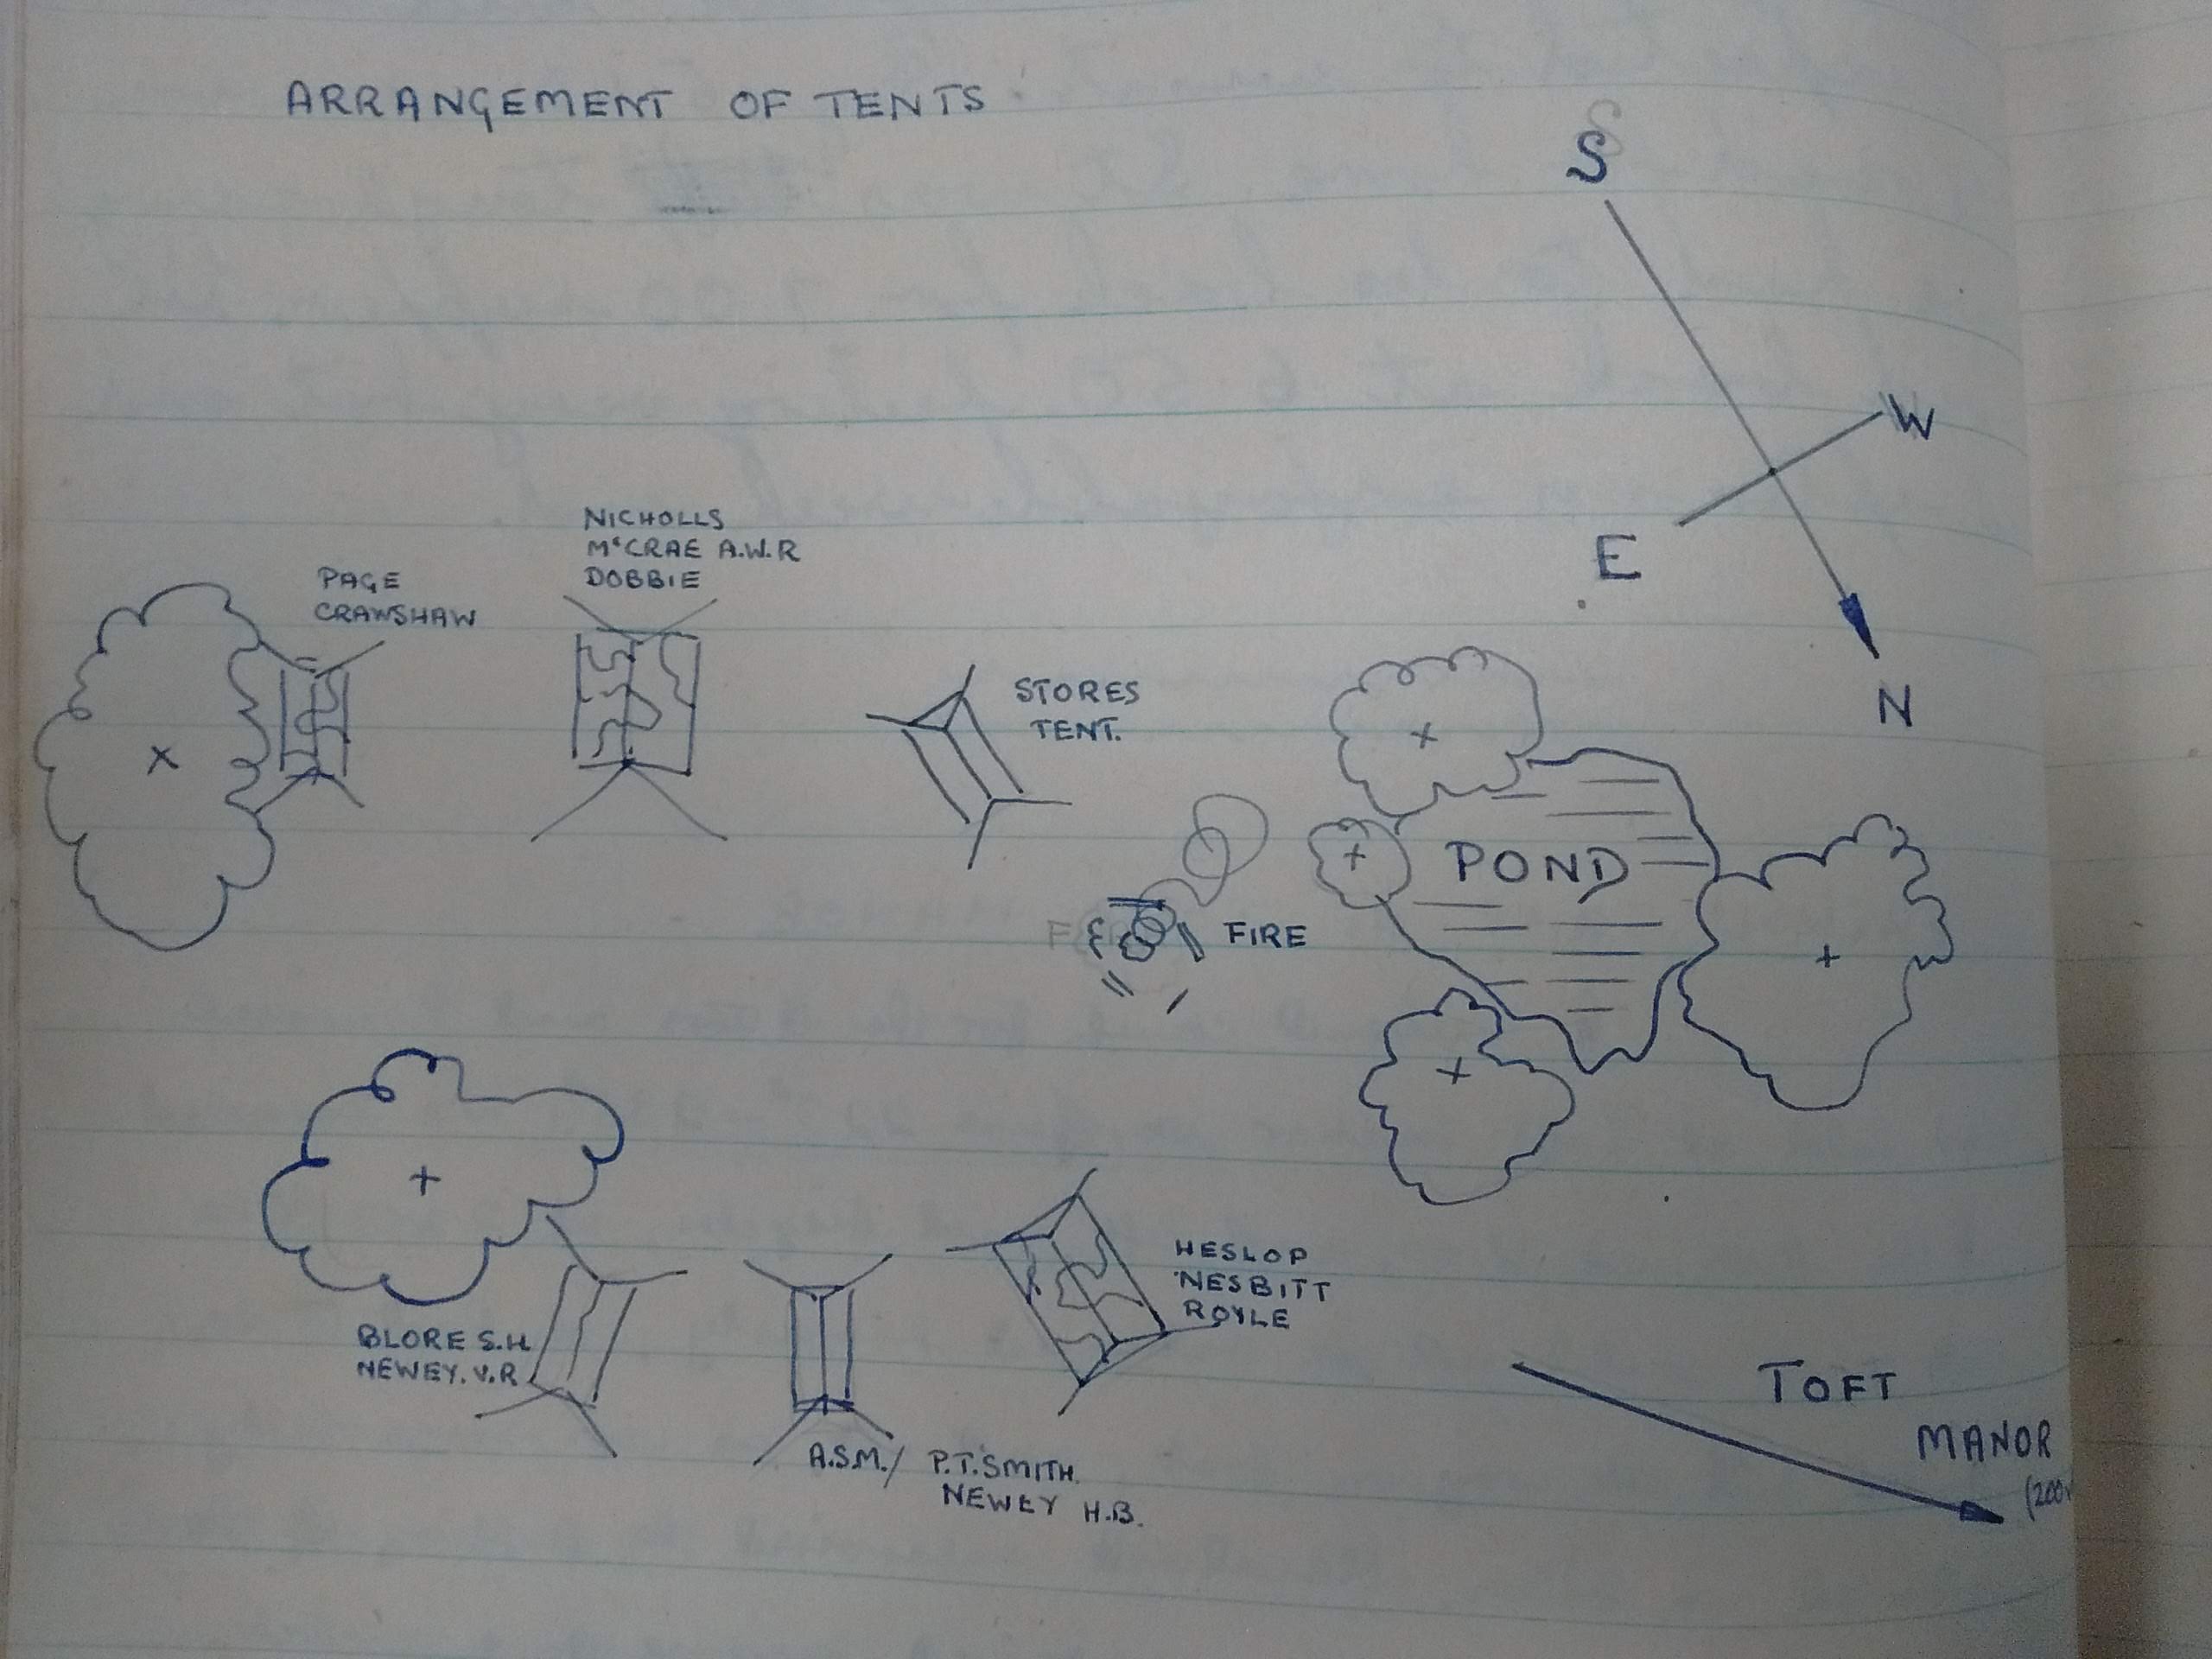 ARRANGEMENT OF TENTS
S
W
E
N
NICHOLLS
McCRAE A.W.R
DOBBIE
PAGE
CRAWSHAW
STORES
TENT.
POND
FIRE
HESLOP
NESBITT
ROYLE
BLORE S.H.
NEWEY. V.R
A.S.M./ P.T.SMITH.
NEWEY H.B.
TOFT
MANOR